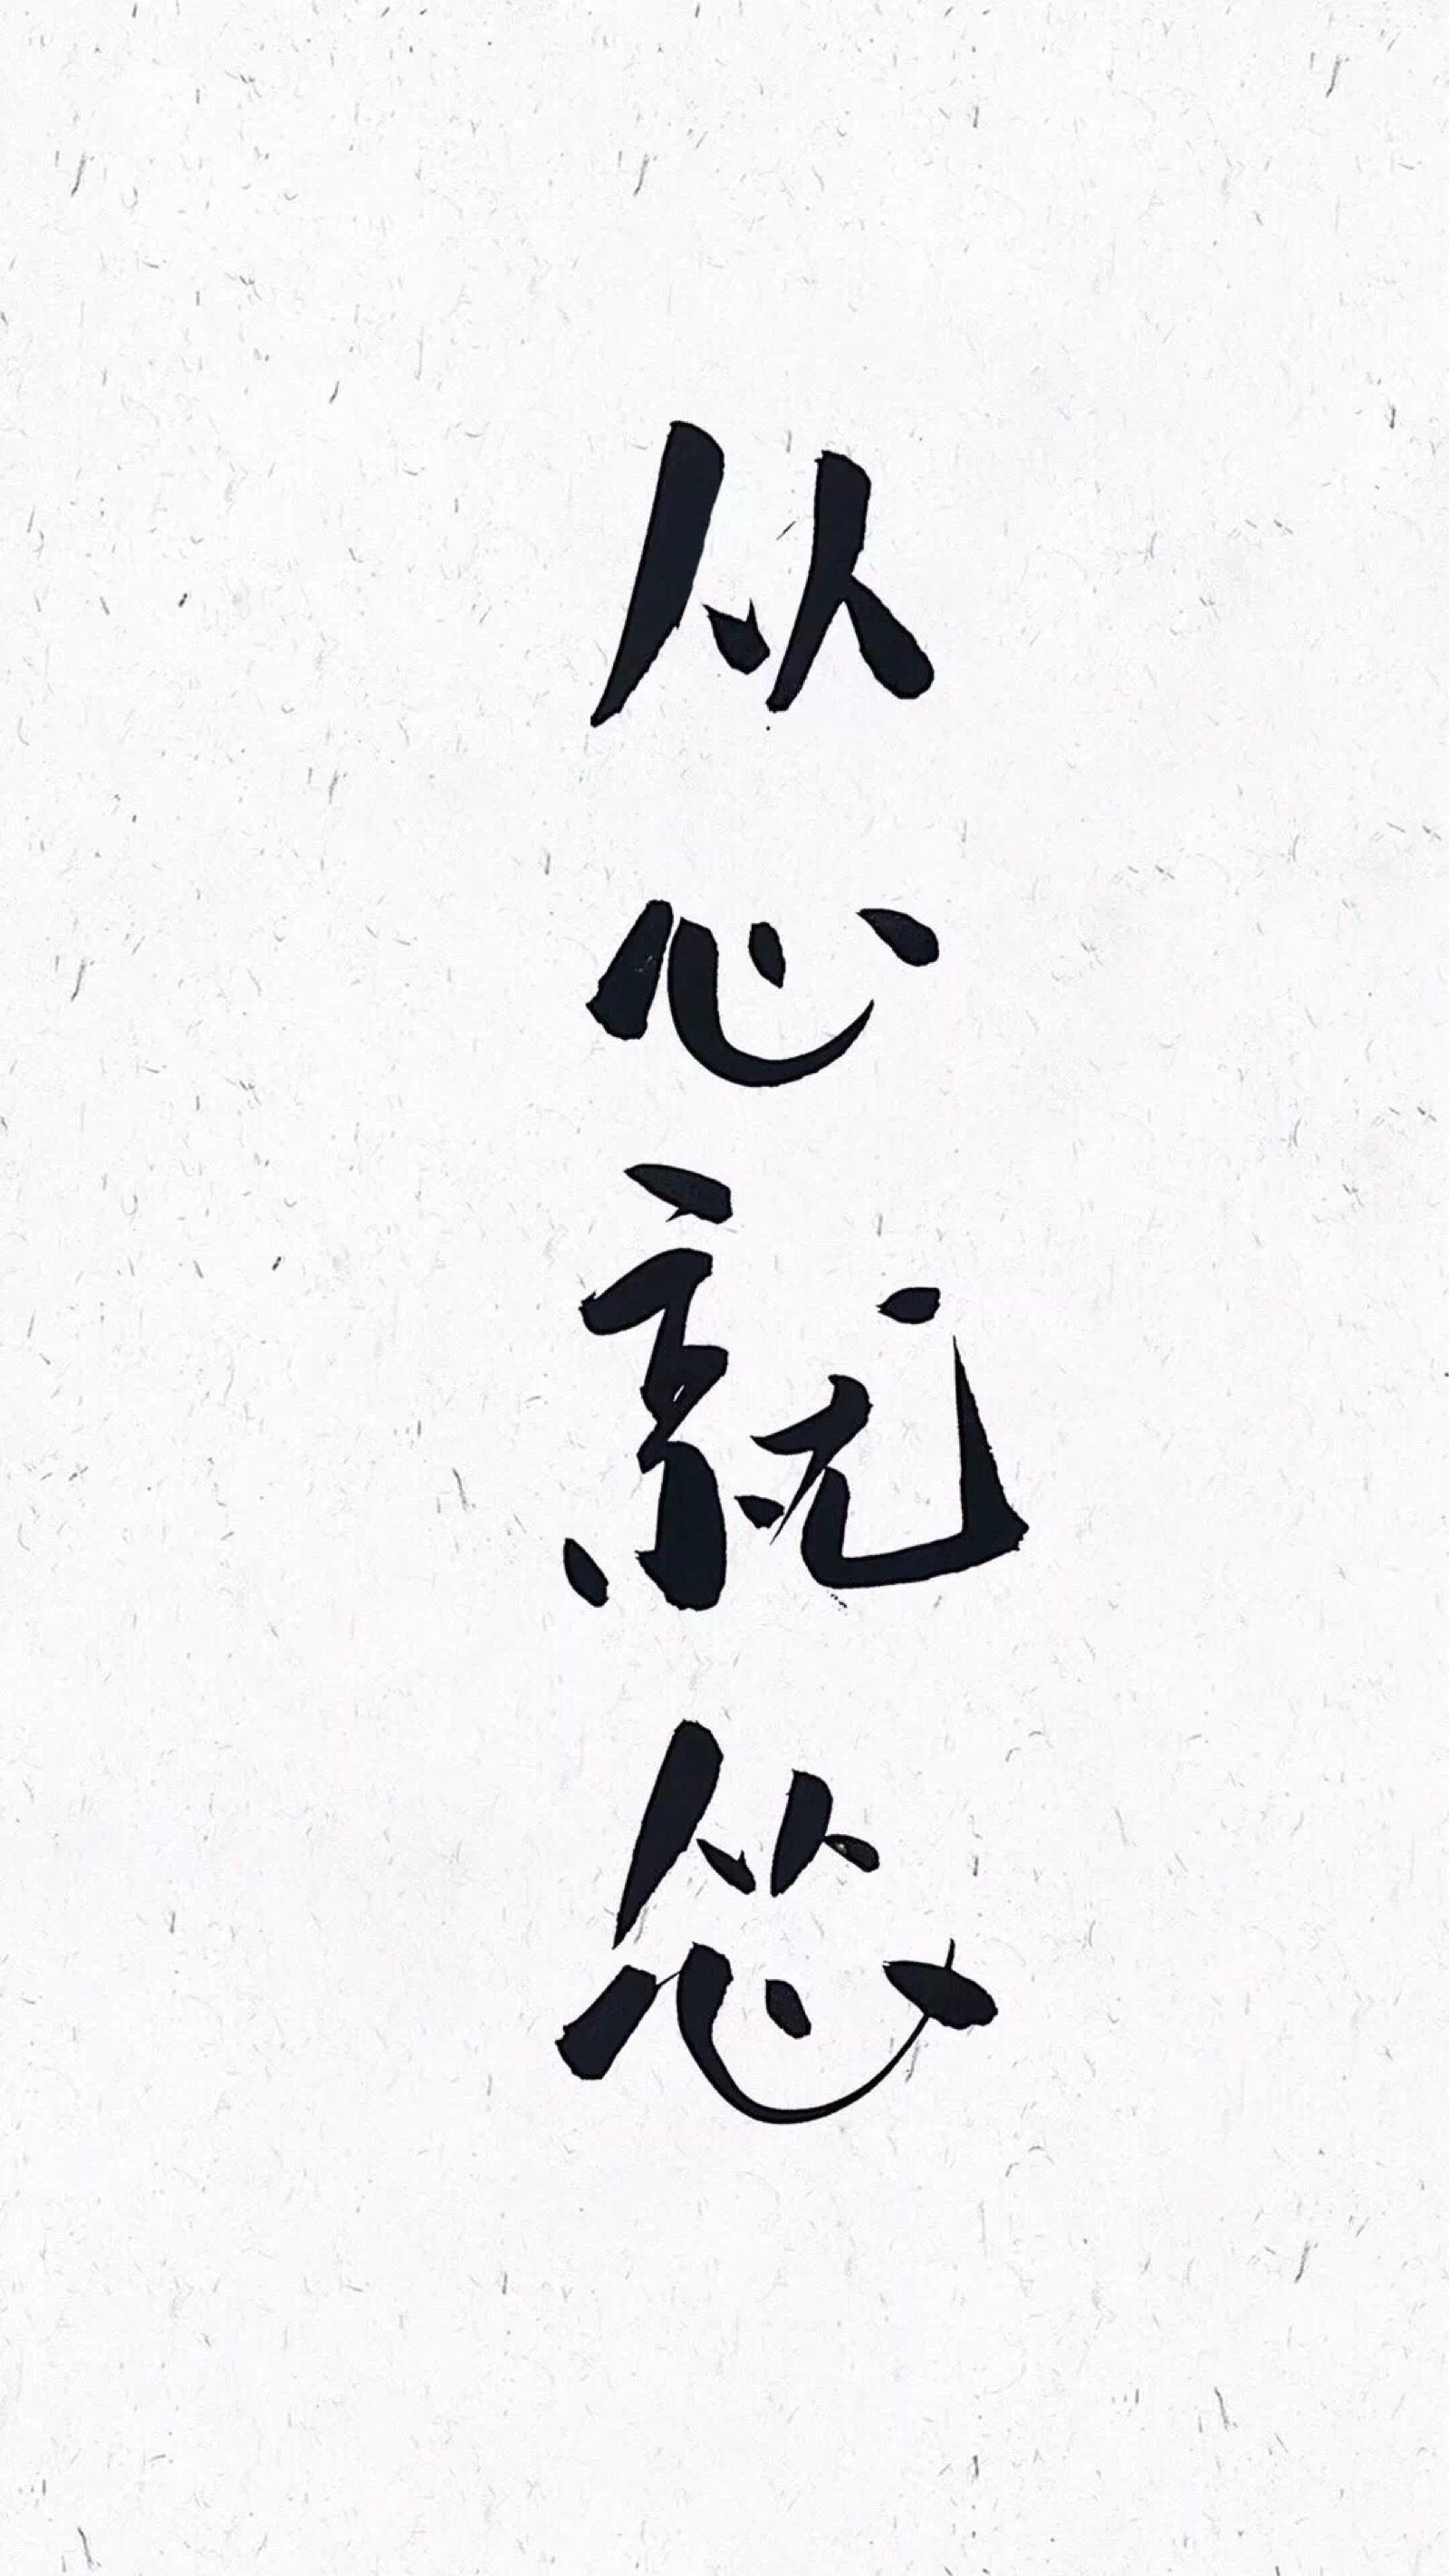 从心就怂